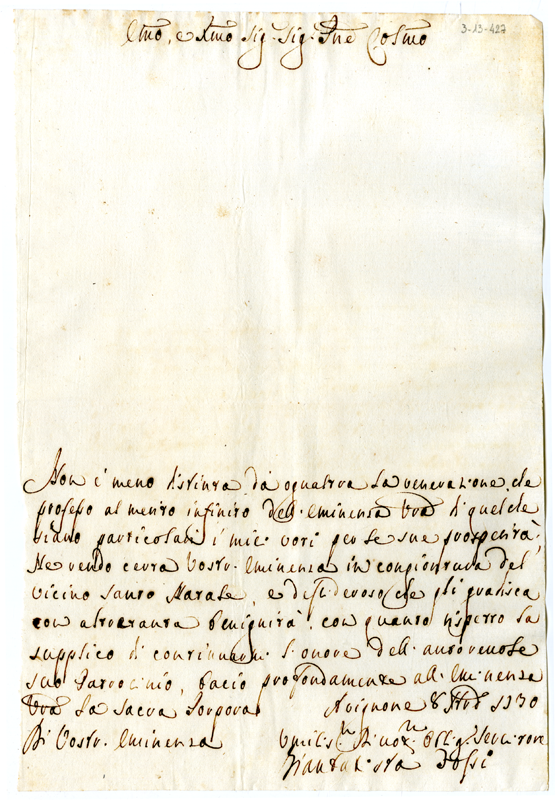 Emõ, e Rmõ Sig. Sig. Pñe Cosmo
3-13-427
Non è meno distinta dà ogn'altra la venerazione, che
professo al merito infinito dell'Eminenza Vrã di quel che
siano particolari i miei voti per le sue prosperità.
Ne rendo certa Vostr' Eminenza in congiontura del
vicino Santo Natale, e desideroso che gli gradisca
con altretanta benignità, con quanto rispetto la
supplico di continuarmi l'onore dell' autorevole
suo Patrocinio, bacio profondamente all' Eminenza
Vrã la Sacra Porpora. Avignone 8 Xbre 1730
Di Vostr' Eminenza
Umilis. Divot. Obblig. Servitore
Dossi